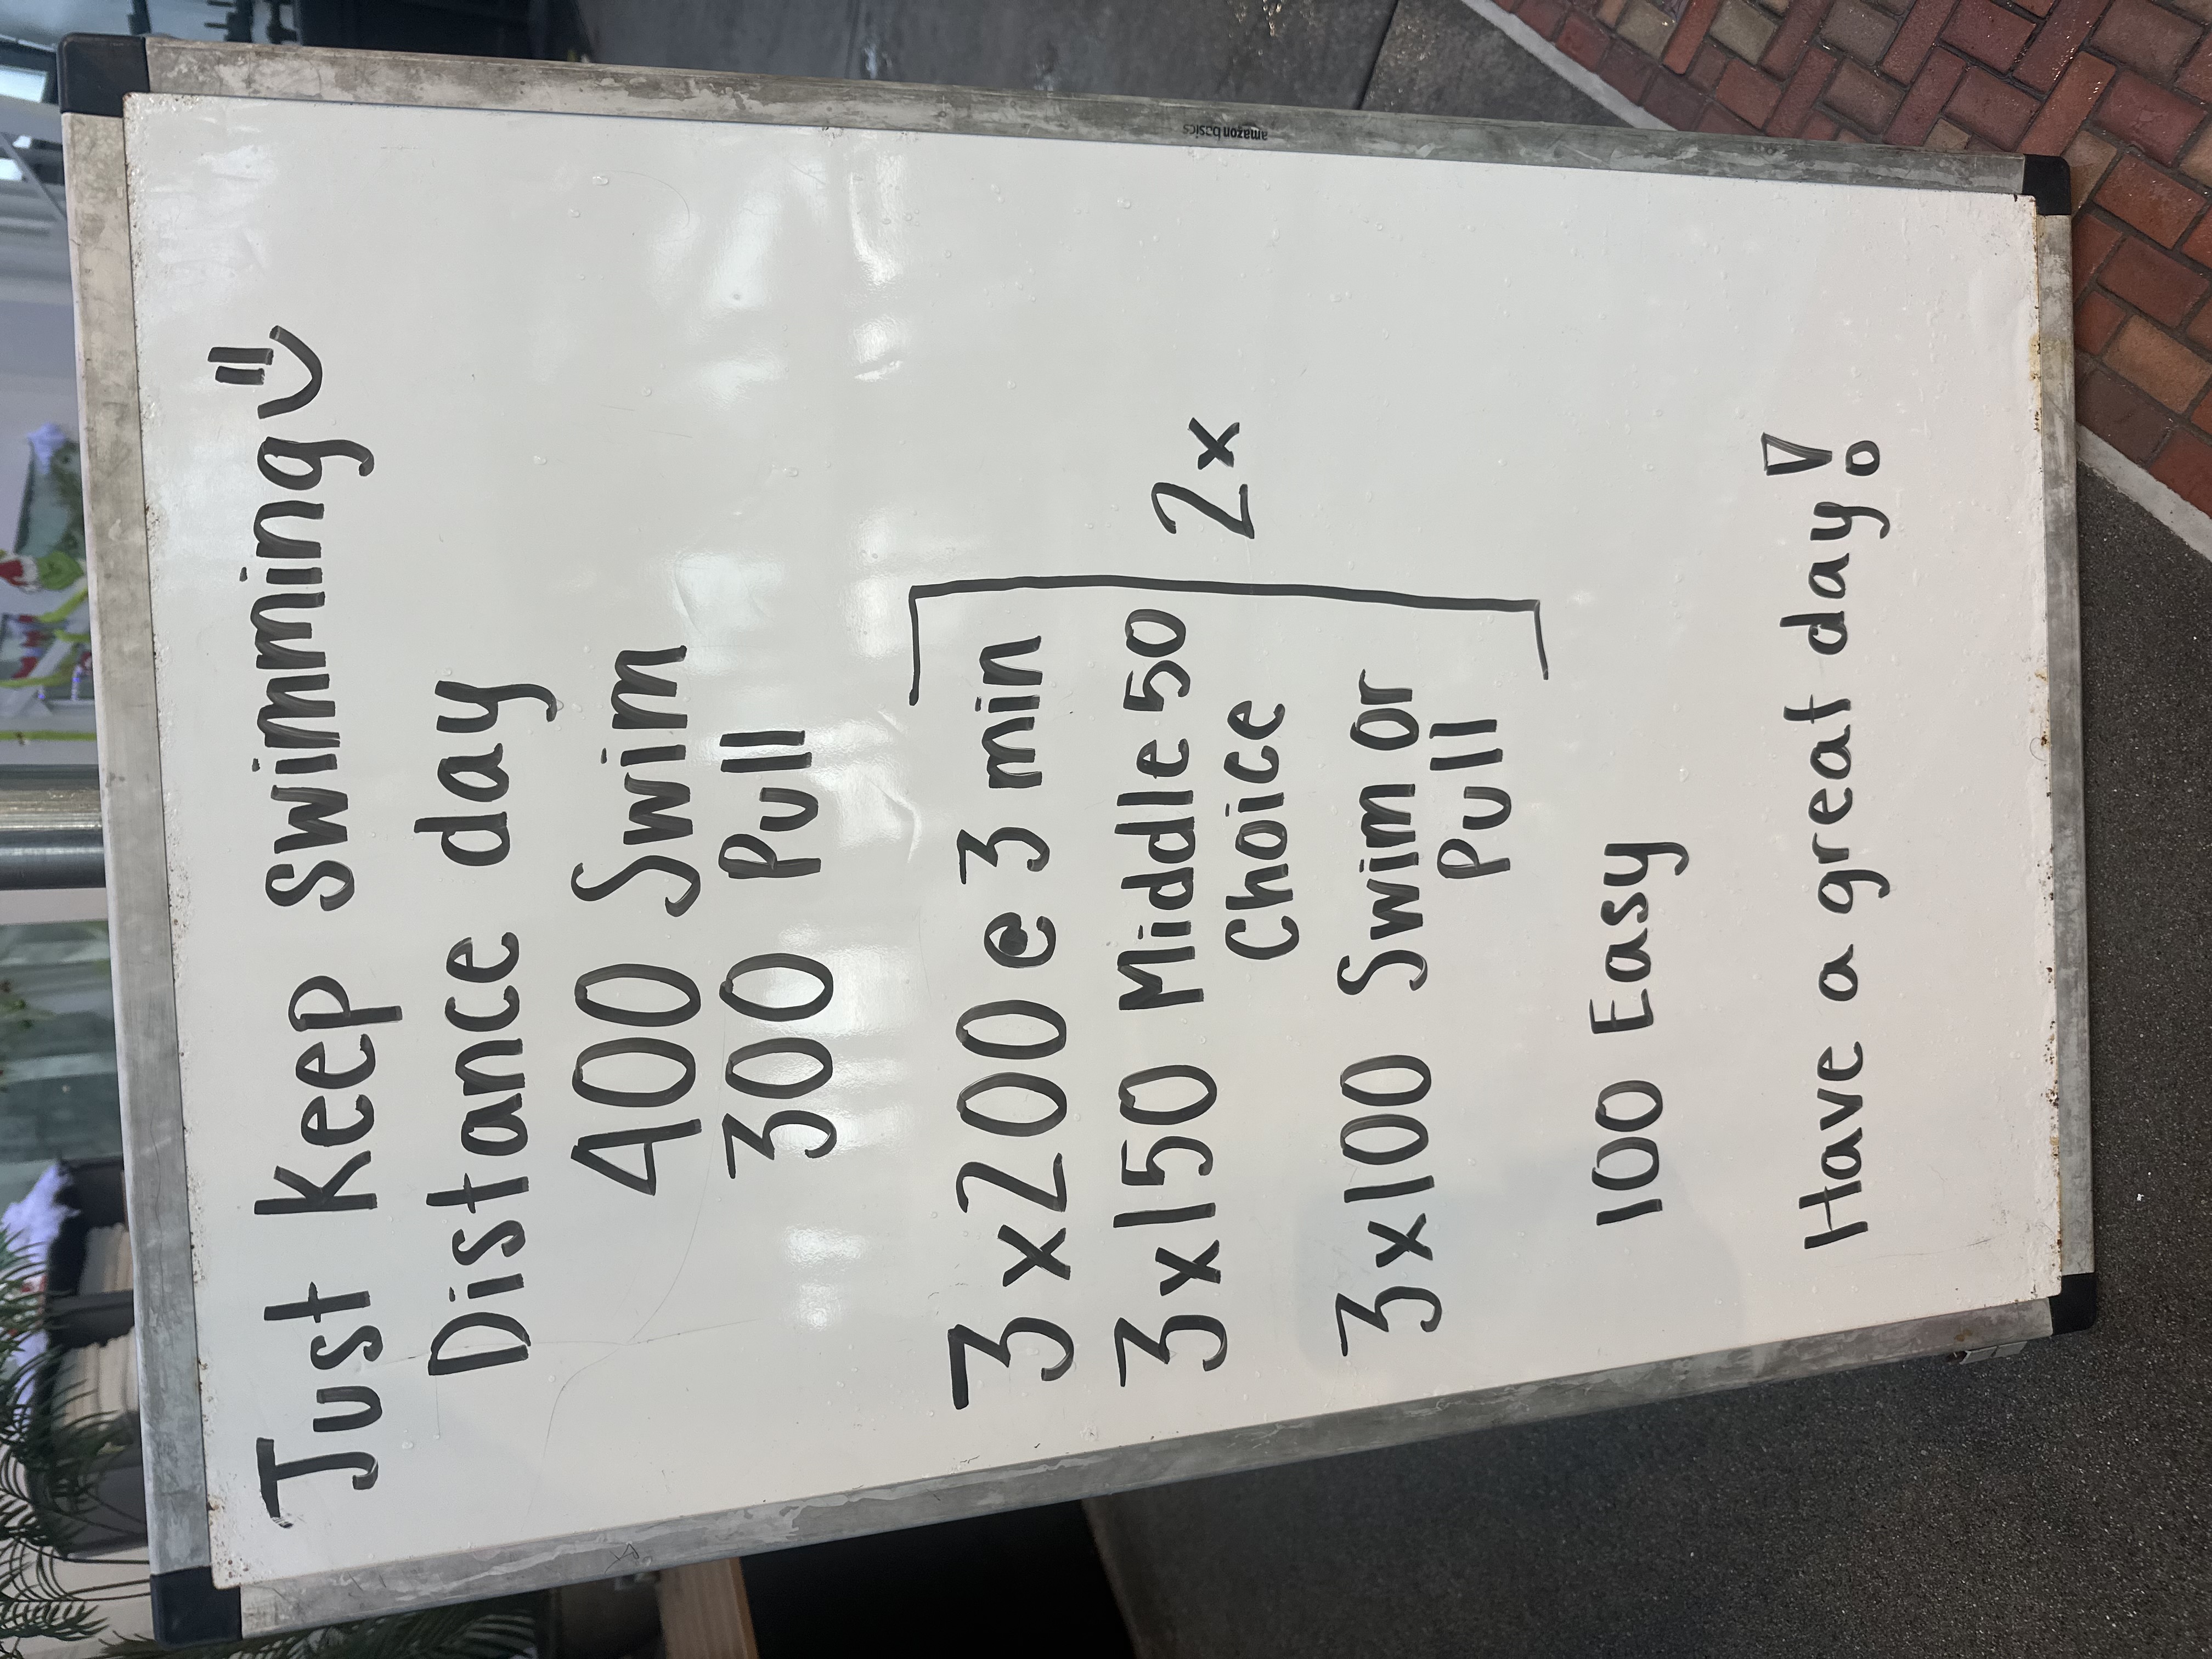 Just Keep Swimming
Distance day
400 Swim
300 Pull
3x200 @ 3 min
3x150 Middle 50
Choice
2x
3x100 Swim or
Pull
100 Easy
Have a great day!
amazon basics